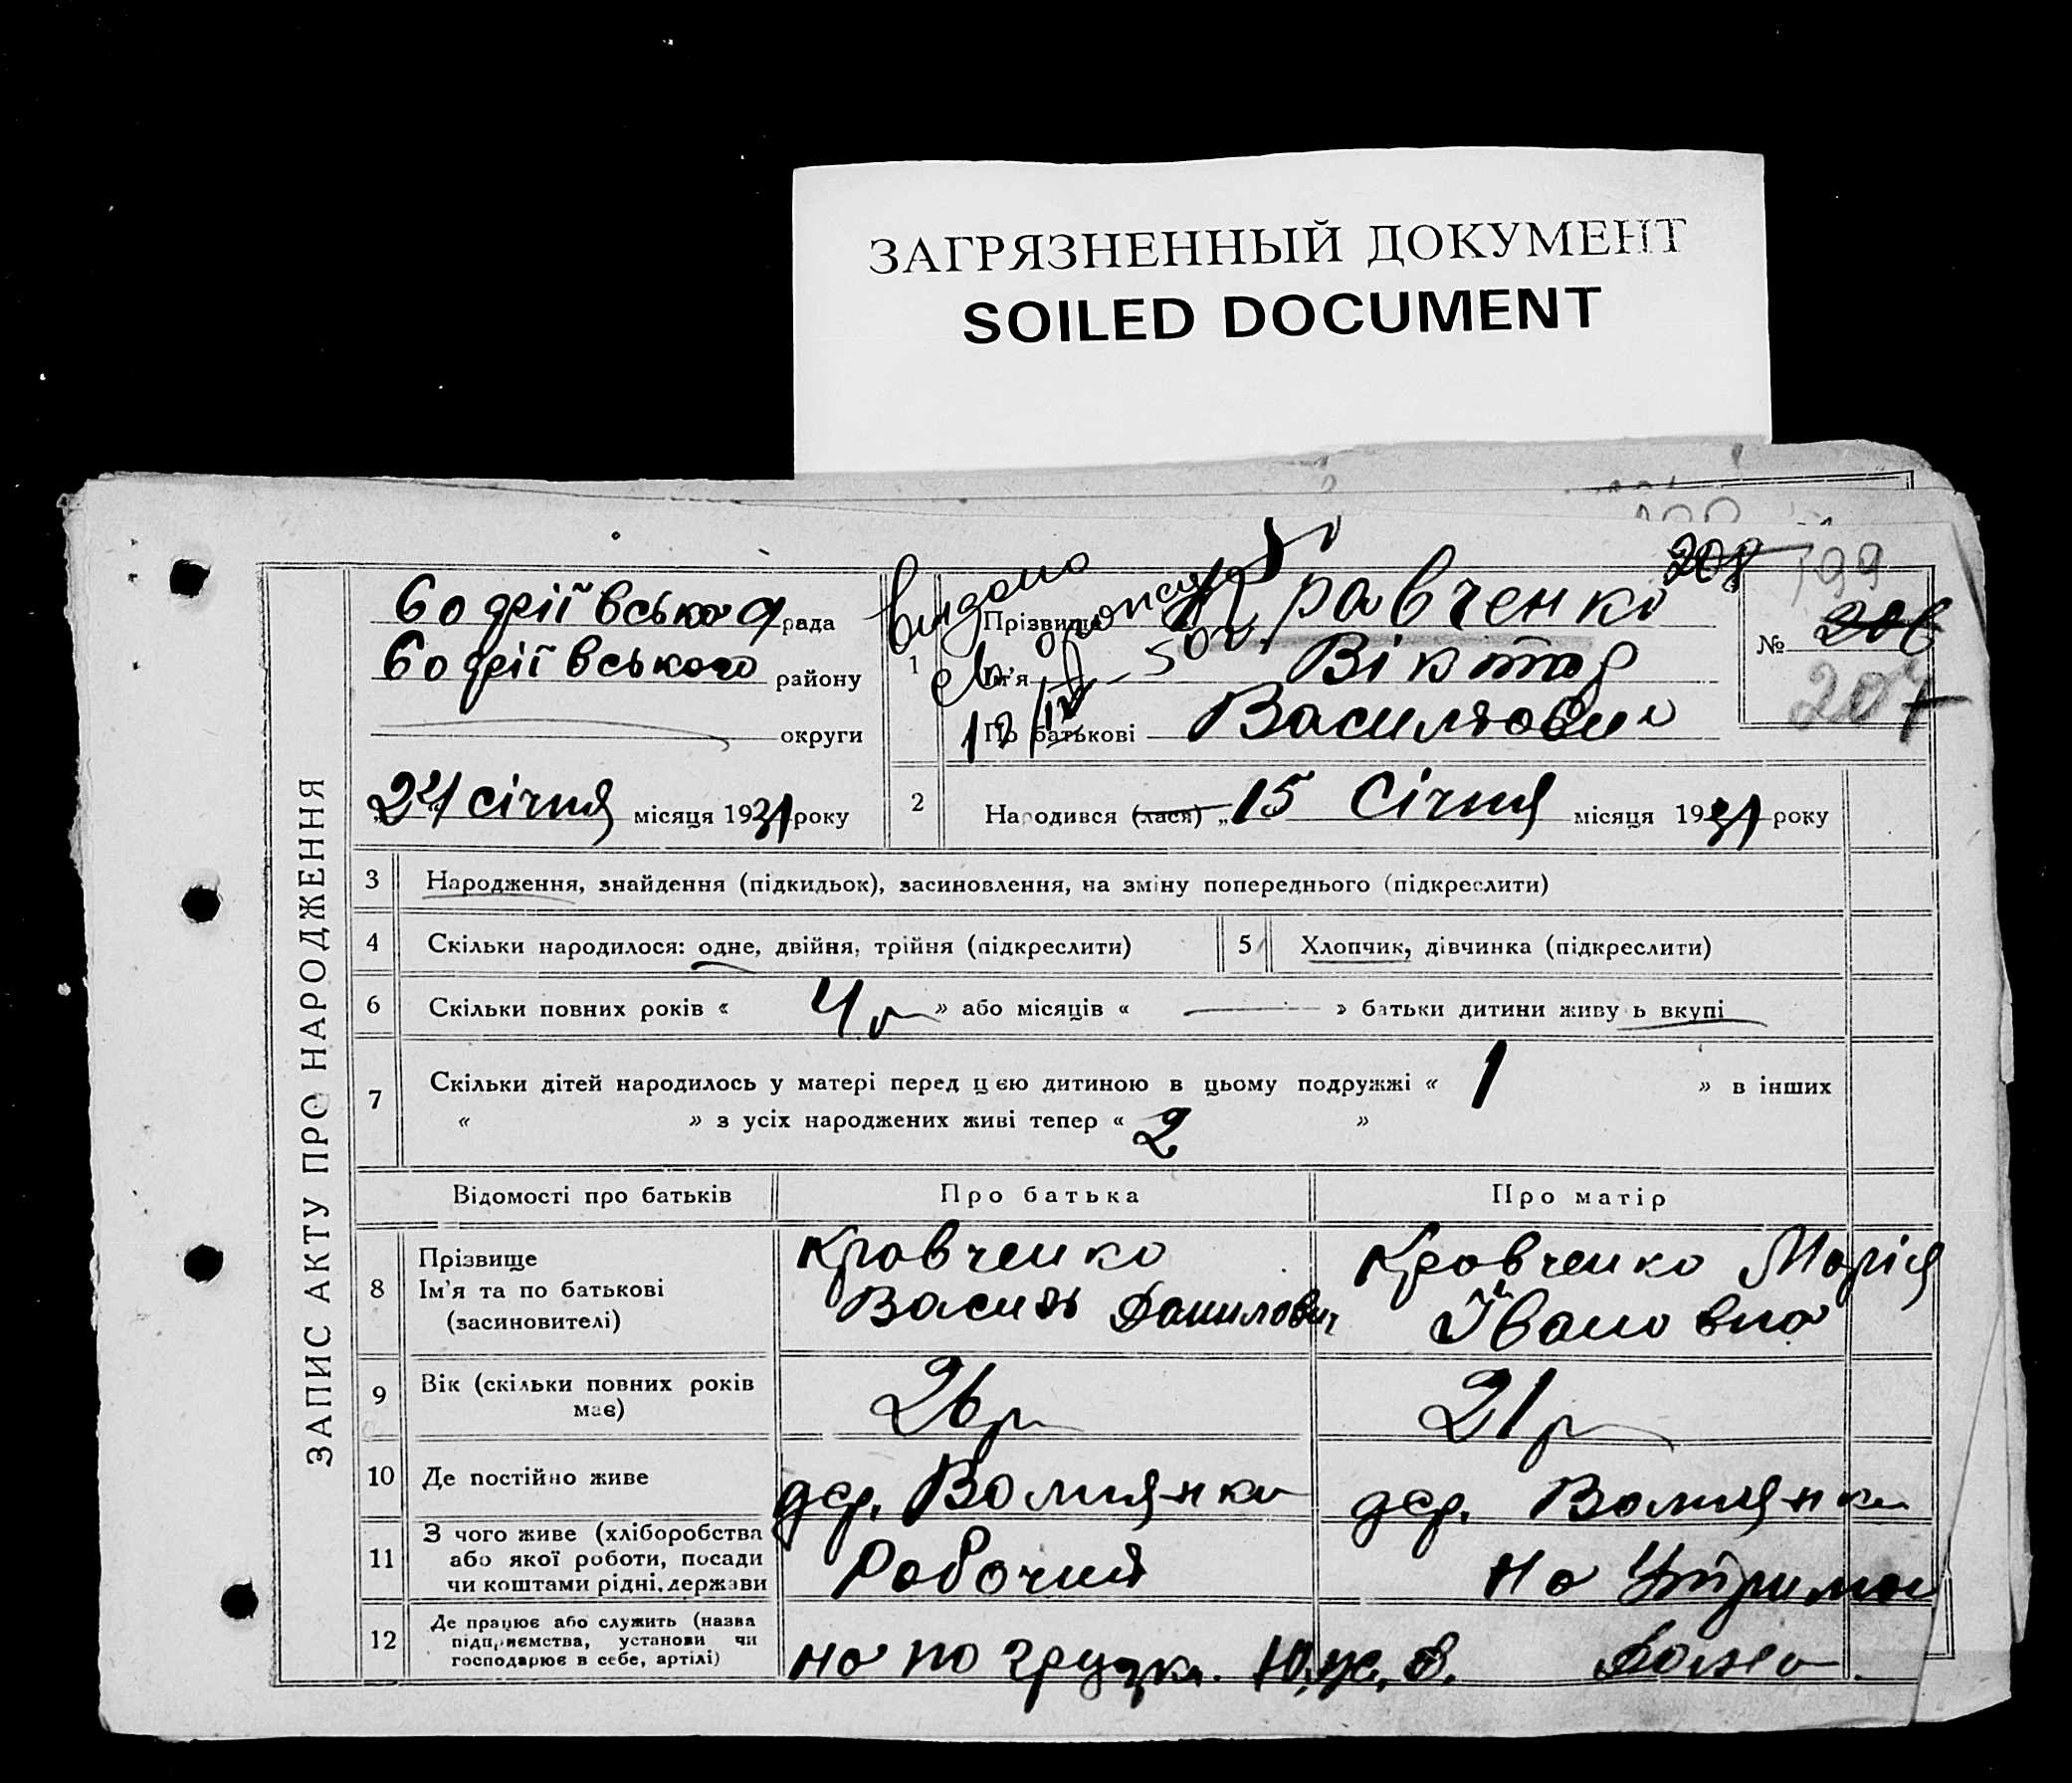 ЗАГРЯЗНЕННЫЙ ДОКУМЕНТ
SOILED DOCUMENT
ЗАПИС АКТУ ПРО НАРОДЖЕННЯ
рада
району
округи
24 січня місяця 1931 року
видано
1
Прізвище Кравченко
Ім'я Віктор
По батькові
208
199
№ 206
207
2 Народився (лася) „15 Січня місяця 1931 року
3 Народження, знайдення (підкидьок), засиновлення, на зміну попереднього (підкреслити)
4 Скільки народилося: одне, двійня, трійня (підкреслити)
5 Хлопчик, дівчинка (підкреслити)
6 Скільки повних років « 4 р » або місяців « — » батьки дитини живуть вкупі
7 Скільки дітей народилось у матері перед цією дитиною в цьому подружжі « 1 » в інших
« » з усіх народжених живі тепер « 2 »
Відомості про батьків
Про батька
Про матір
8 Прізвище
Ім'я та по батькові
(засиновителі)
Кравченко
Василь Данилович
Кравченко Марія
Івановна
9 Вік (скільки повних років
має)
26 р
21 р
10 Де постійно живе
дер.
дер.
11 З чого живе (хліборобства
або якої роботи, посади
чи коштами рідні, держави
Робочий
на Утриман
12 Де працює або служить (назва
підприємства, установи чи
господарює в себе, артілі)
на погрузки.
Дома